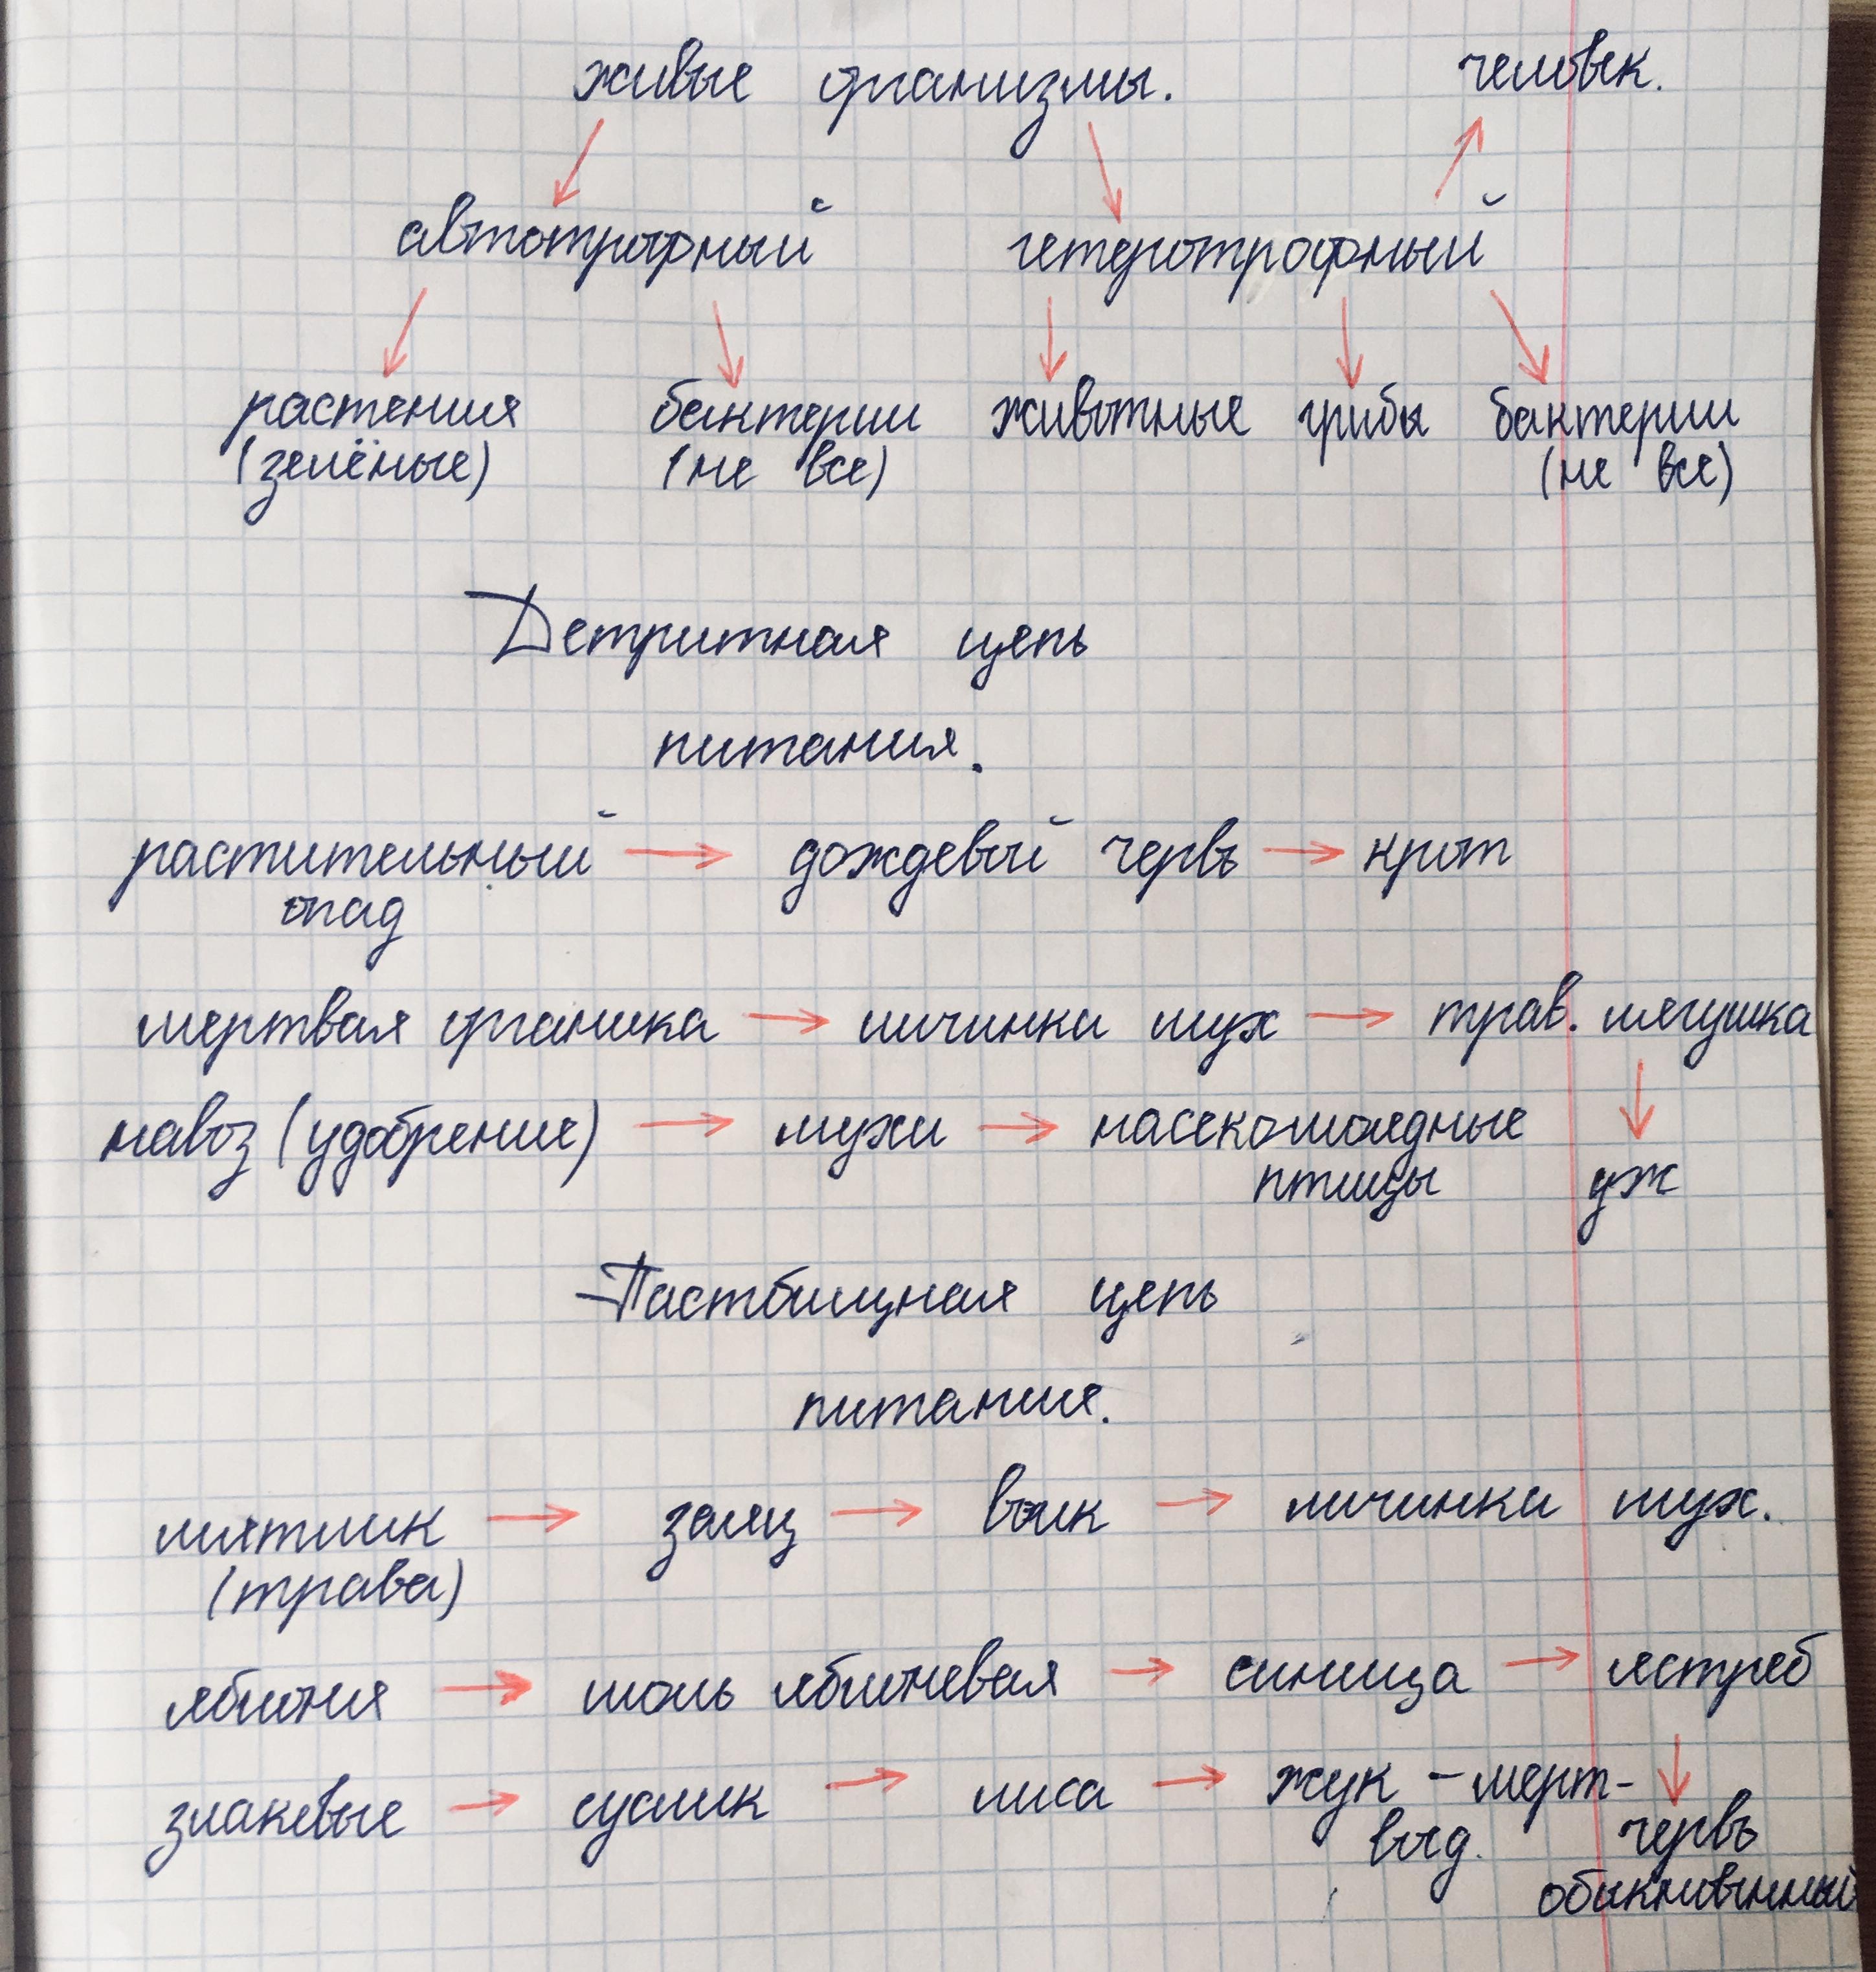 живые организмы. человек.
автотрофный гетеротрофный
растения бактерии животные грибы бактерии
(зелёные) (не все) (не все)
Детритная цепь
питания.
растительный → дождевой червь → крот
опад
мертвая органика → личинки мух → трав. лягушка
навоз (удобрение) → мухи → насекомоядные
птицы уж
Пастбищная цепь
питания.
мятлик → заяц → волк → личинки мух.
(трава)
яблоня → моль яблоневая → синица → ястреб
злаковые → суслик → лиса → жук - мерт-
воед. червь
обыкновенный